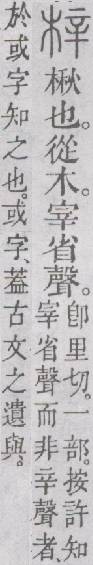 梓楸也。從木。宰省聲。
卽里切。一部。按許知
宰省聲而非辛聲者、
於或字知之也。或字、葢古文之遺與。